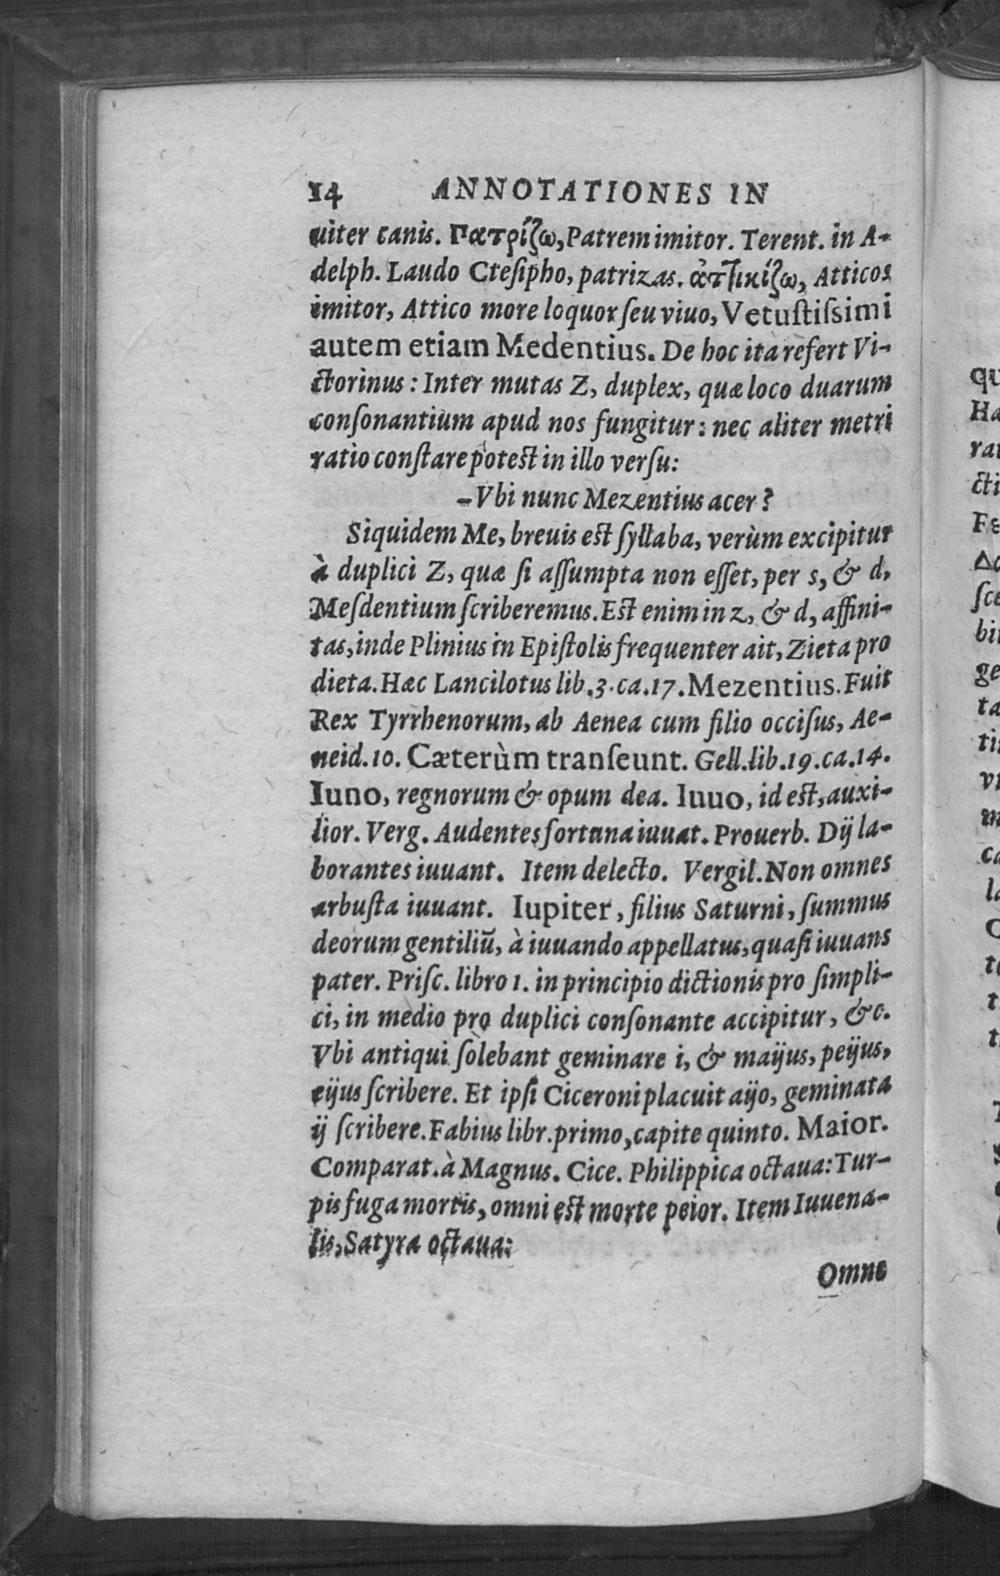 14 ANNOTATIONES IN
uiter canis. Πατρίζω, Patrem imitor. Terent. in A-
delph. Laudo Ctesipho, patrizas. ἀττικίζω, Atticos
imitor, Attico more loquor seu viuo, Vetustissimi
autem etiam Medentius. De hoc ita refert Vi-
ctorinus: Inter mutas Z, duplex, quæ loco duarum
consonantium apud nos fungitur: nec aliter metri
ratio constare potest in illo versu:
–Vbi nunc Mezentius acer?
Siquidem Me, breuis est syllaba, verùm excipitur
à duplici Z, quæ si assumpta non esset, per s, & d,
Mesdentium scriberemus. Est enim in z, & d, affini-
tas, inde Plinius in Epistolis frequenter ait, Zieta pro
dieta. Hæc Lancilotus lib. 3. ca. 17. Mezentius. Fuit
Rex Tyrrhenorum, ab Aenea cum filio occisus, Ae-
neid. 10. Cæterùm transeunt. Gell. lib. 19. ca. 14.
Iuno, regnorum & opum dea. Iuuo, id est, auxi-
lior. Verg. Audentes fortuna iuuat. Prouerb. Dij la-
borantes iuuant. Item delecto. Vergil. Non omnes
arbusta iuuant. Iupiter, filius Saturni, summus
deorum gentiliũ, à iuuando appellatus, quasi iuuans
pater. Prisc. libro 1. in principio dictionis pro simpli-
ci, in medio pro duplici consonante accipitur, &c.
Vbi antiqui solebant geminare i, & maijus, peijus,
eijus scribere. Et ipsi Ciceroni placuit aijo, geminata
ij scribere. Fabius libr. primo, capite quinto. Maior.
Comparat. à Magnus. Cice. Philippica octaua: Tur-
pis fuga mortis, omni est morte peior. Item Iuuena-
lis, Satyra octaua:
Omne